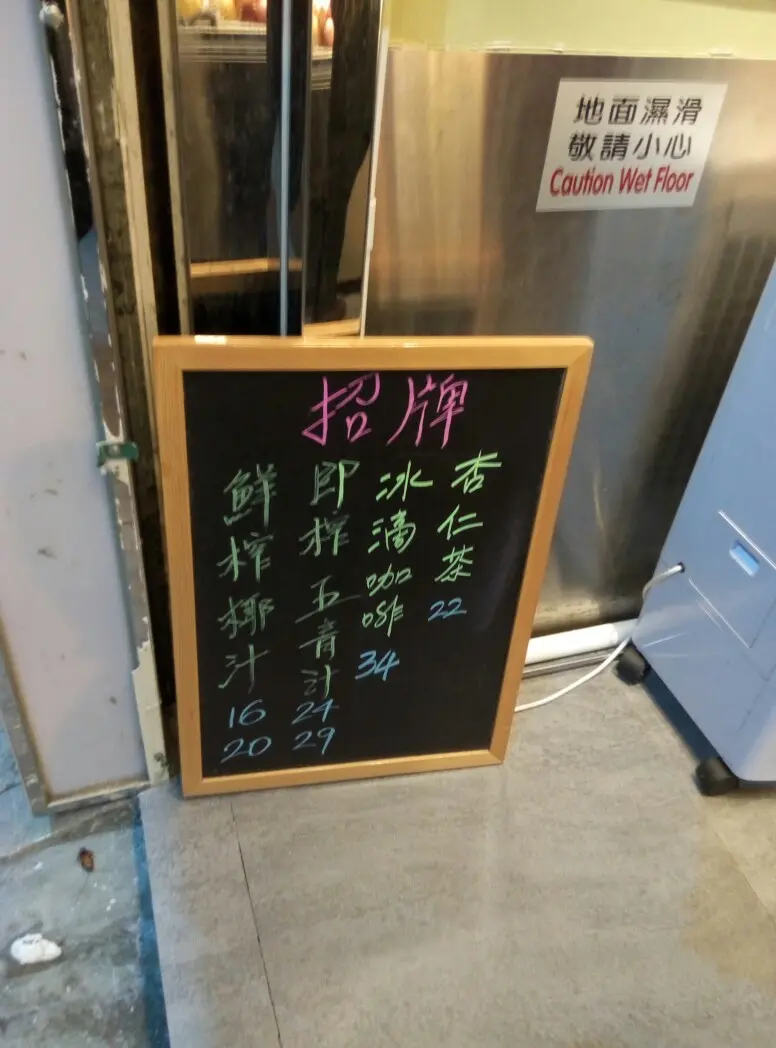 地面濕滑
敬請小心
Caution Wet Floor
招牌
杏仁茶
22
冰滴咖啡
34
即榨五青汁
24
29
鮮榨椰汁
16
20